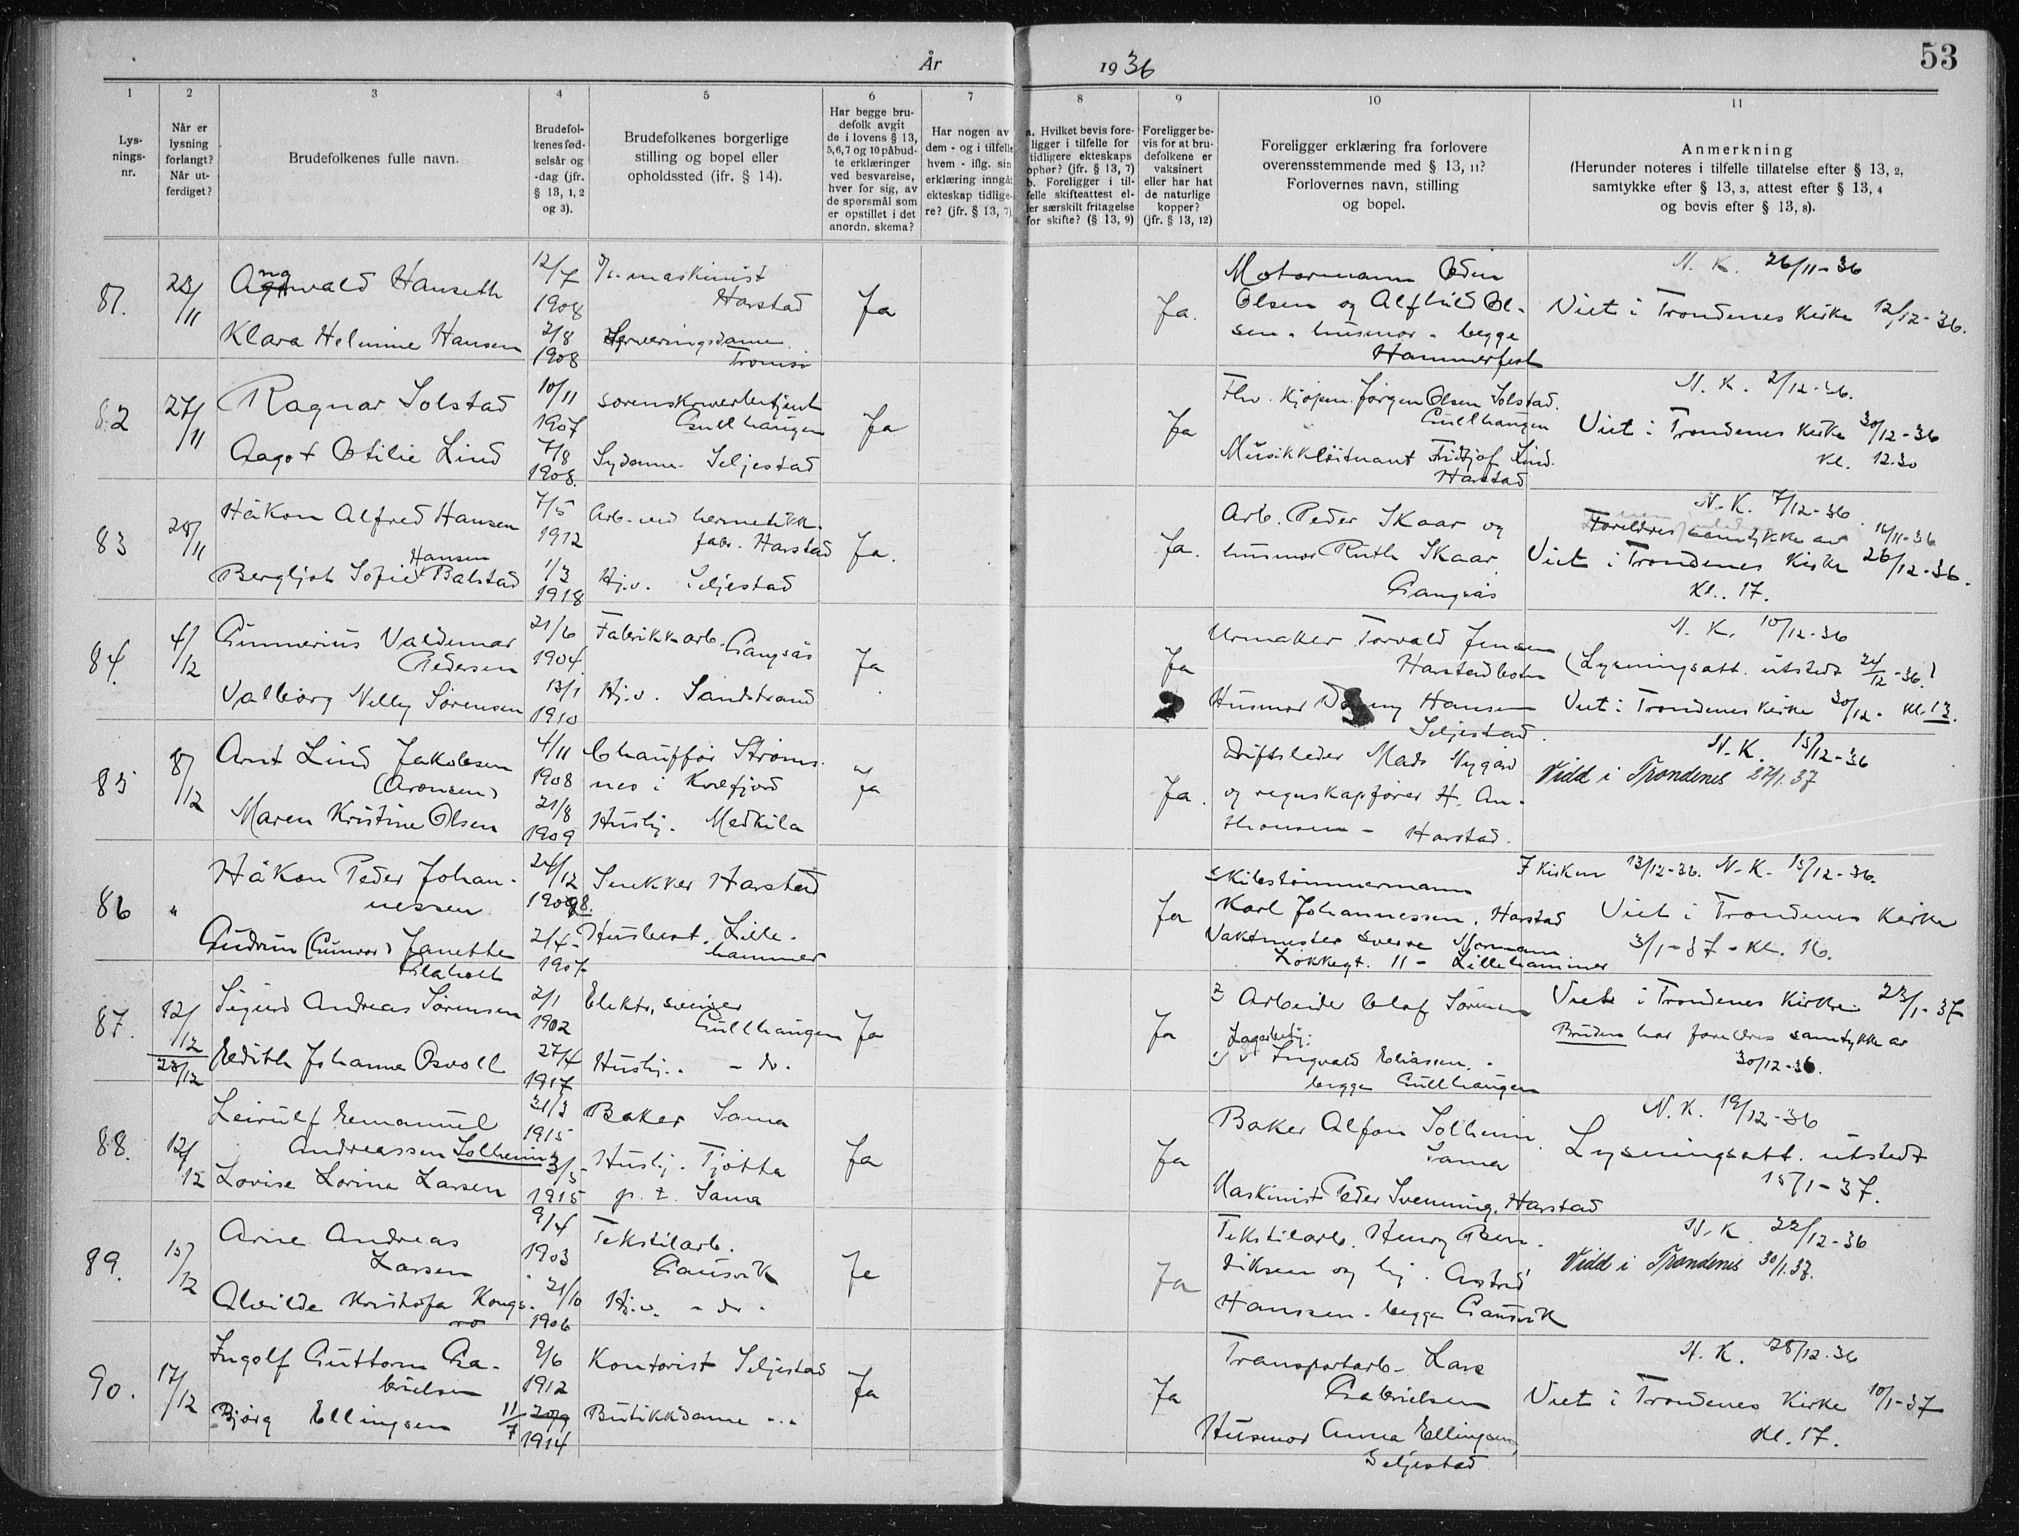 År 1936
53
1 2 3 4 5 6 7 8 9 10 11
Lys-
nings-
nr.
Når er
lysning
forlangt?
Når ut-
ferdiget?
Brudefolkenes fulle navn.
Brudefol-
kenes fød-
selsår og
-dag (jfr.
§ 13, 1, 2
og 3).
Brudefolkenes borgerlige
stilling og bopel eller
opholdssted (ifr. § 14).
Har begge bru-
defolk avgit
de i lovens § 13,
5,6,7 og 10 påbud-
te erklæringer
ved besvarelse,
hver for sig, av
de spørsmål som
er opstillet i det
anordn. skema?
Har nogen av
dem - og i tilfelle
hvem - iflg. sin
erklæring inngå
ekteskap tidlige-
re? (jfr. § 13, 7)
a. Hvilket bevis fore-
ligger i tilfelle for
tidligere ekteskaps
ophør? (jfr. § 13, 7)
b. Foreligger i til-
felle skifteattest el-
ler særskilt fritagelse
for skifte? (§ 13, 9)
Foreligger be-
vis for at bru-
defolkene er
vaksinert
eller har hat
de naturlige
kopper?
(jfr. § 13, 12)
Foreligger erklæring fra forlovere
overensstemmende med § 13, 11?
Forlovernes navn, stilling
og bopel.
Anmerkning
(Herunder noteres i tilfelle tillatelse efter § 13, 2,
samtykke efter § 13, 3, attest efter § 13, 4
og bevis efter § 13, 8).
81.
23/11
Hanseth
Klara Helmine Hansen
12/7
1908
2/8
1908
maskinist
Harstad
Serveringsdame
Tromsø
Ja
Ja.
Motormann Odin
Olsen og Alfhild Ol-
sen - husmor - begge
Hammerfest
N. K. 26/11-36
Viet i Trondenes Kirke 12/12-36.
82
27/11
Ragnar Solstad
Aagot Otilie Lind
10/11
1907
7/8
1908.
sorenskriverbetjent
Gullhaugen
Sydame. Seljestad
Ja
Ja
Fhv. Kjøpm. Jørgen Olsen Solstad.
Gullhaugen
Musikkløitnant Fridtjof Lind.
Harstad
N. K. 2/12-36.
Viet i Trondenes Kirke 30/12-36
Kl. 12.30
83
28/11
Håkon Alfred Hansen
Hansen
Bergljot Sofie Balstad
7/5
1912
1/3
1918
Arb. ved hermetikk-
fabr. Harstad
Hj.v. Seljestad
Ja.
Ja.
Arb. Peder Skaar og
husmor Ruth Skaar
Gangsås
N. K. 7/12-36
Foreldres samtykke av 16/11-36
Viet i Trondenes Kirke 26/12-36.
Kl. 17.
84.
4/12
Gunnerius Valdemar
Pedersen
Valborg Nelly Sørensen
21/6
1904
13/1
1910
Fabrikkarb. Gangsås
Hj.v. Sandstrand
Ja
Ja
Urmaker Torvald Jensen
Harstadbotn
Husmor Hansen
Seljestad.
N. K. 10/12-36
(Lysningsatt. utstedt 24/12-36.)
Viet i Trondenes Kirke 30/12- Kl. 13.
85
8/12
Arnt Lind Jakobsen
(Aronsen)
Maren Kristine Olsen
4/11
1908
21/8
1909
Chauffør Straums-
nes i Kvæfjord
Huslj. Medkila
Ja
Ja.
Driftsleder Mads Nygård
og regnskapsfører H. An-
thonsen - Harstad.
N. K. 15/12-36
Vidd i Trondenes 27/1.37
86
"
Håkon Peder Johan-
nessen
Gudrun (Gunvor) Janette
24/12
2/4-
1907
Snekker Harstad
Lille-
hammer
Ja
Skibstømmermann
Karl Johannessen, Harstad
Vaktmester Sverre Mormann
Løkkegt. 11 - Lillehammer
I Kirken 13/12-36. N. K. 15/12-36.
Viet i Trondenes Kirke
3/1-37 - Kl. 16.
87.
12/12
23/12
Sigurd Andreas Sørensen
Edith Johanna Osvoll
2/1
1902
27/4
1917
Elektr. sveiser
Gullhaugen
Huslj. - do.
Ja
Ja
Arbeider Olaf Sørensen
Lagerbetj:
Ingvald Eliassen. -
begge Gullhaugen
Viet i Trondenes Kirke 23/1-37
Bruden har foreldres samtykke av
30/12-36.
88.
12/12
Leirulf Emanuel
Andreassen Solheim
Lovise Lorina Larsen
31/3
1915
3/5-
1915
Baker Sama
Huslj. Tjøtta
p. t. Sama
Ja
Ja
Baker Alfon Solheim
Sama
Maskinist Peder Svenning, Harstad
N. K. 19/12-36
Lysningsatt. utstedt
15/1-37.
89.
15/12
Arne Andreas
Larsen
Alvilde Kristofa Kongs-
ro
9/4
1903
21/10
1906
Tekstilarb.
Gausvik
Hj.v. - do -
Ja
Ja
Tekstilarb. Henry Ben-
diksen og hj. Astrid
Hanssen - begge Gausvik
N. K. 22/12-36
Vidd i Trondenes 30/1.37.
90.
17/12
Ingolf Guttorm Ga-
brielsen
Bjørg Ellingsen
2/6
1912
11/7 20/9
1914
Kontorist Seljestad
Butikkdame -"-
Ja
Ja
Transportarb. Lars
Gabrielsen
Husmor Anna Ellingsen,
Seljestad
N. K. 28/12-36
Viet i Trondenes Kirke 10/1-37
Kl. 17.